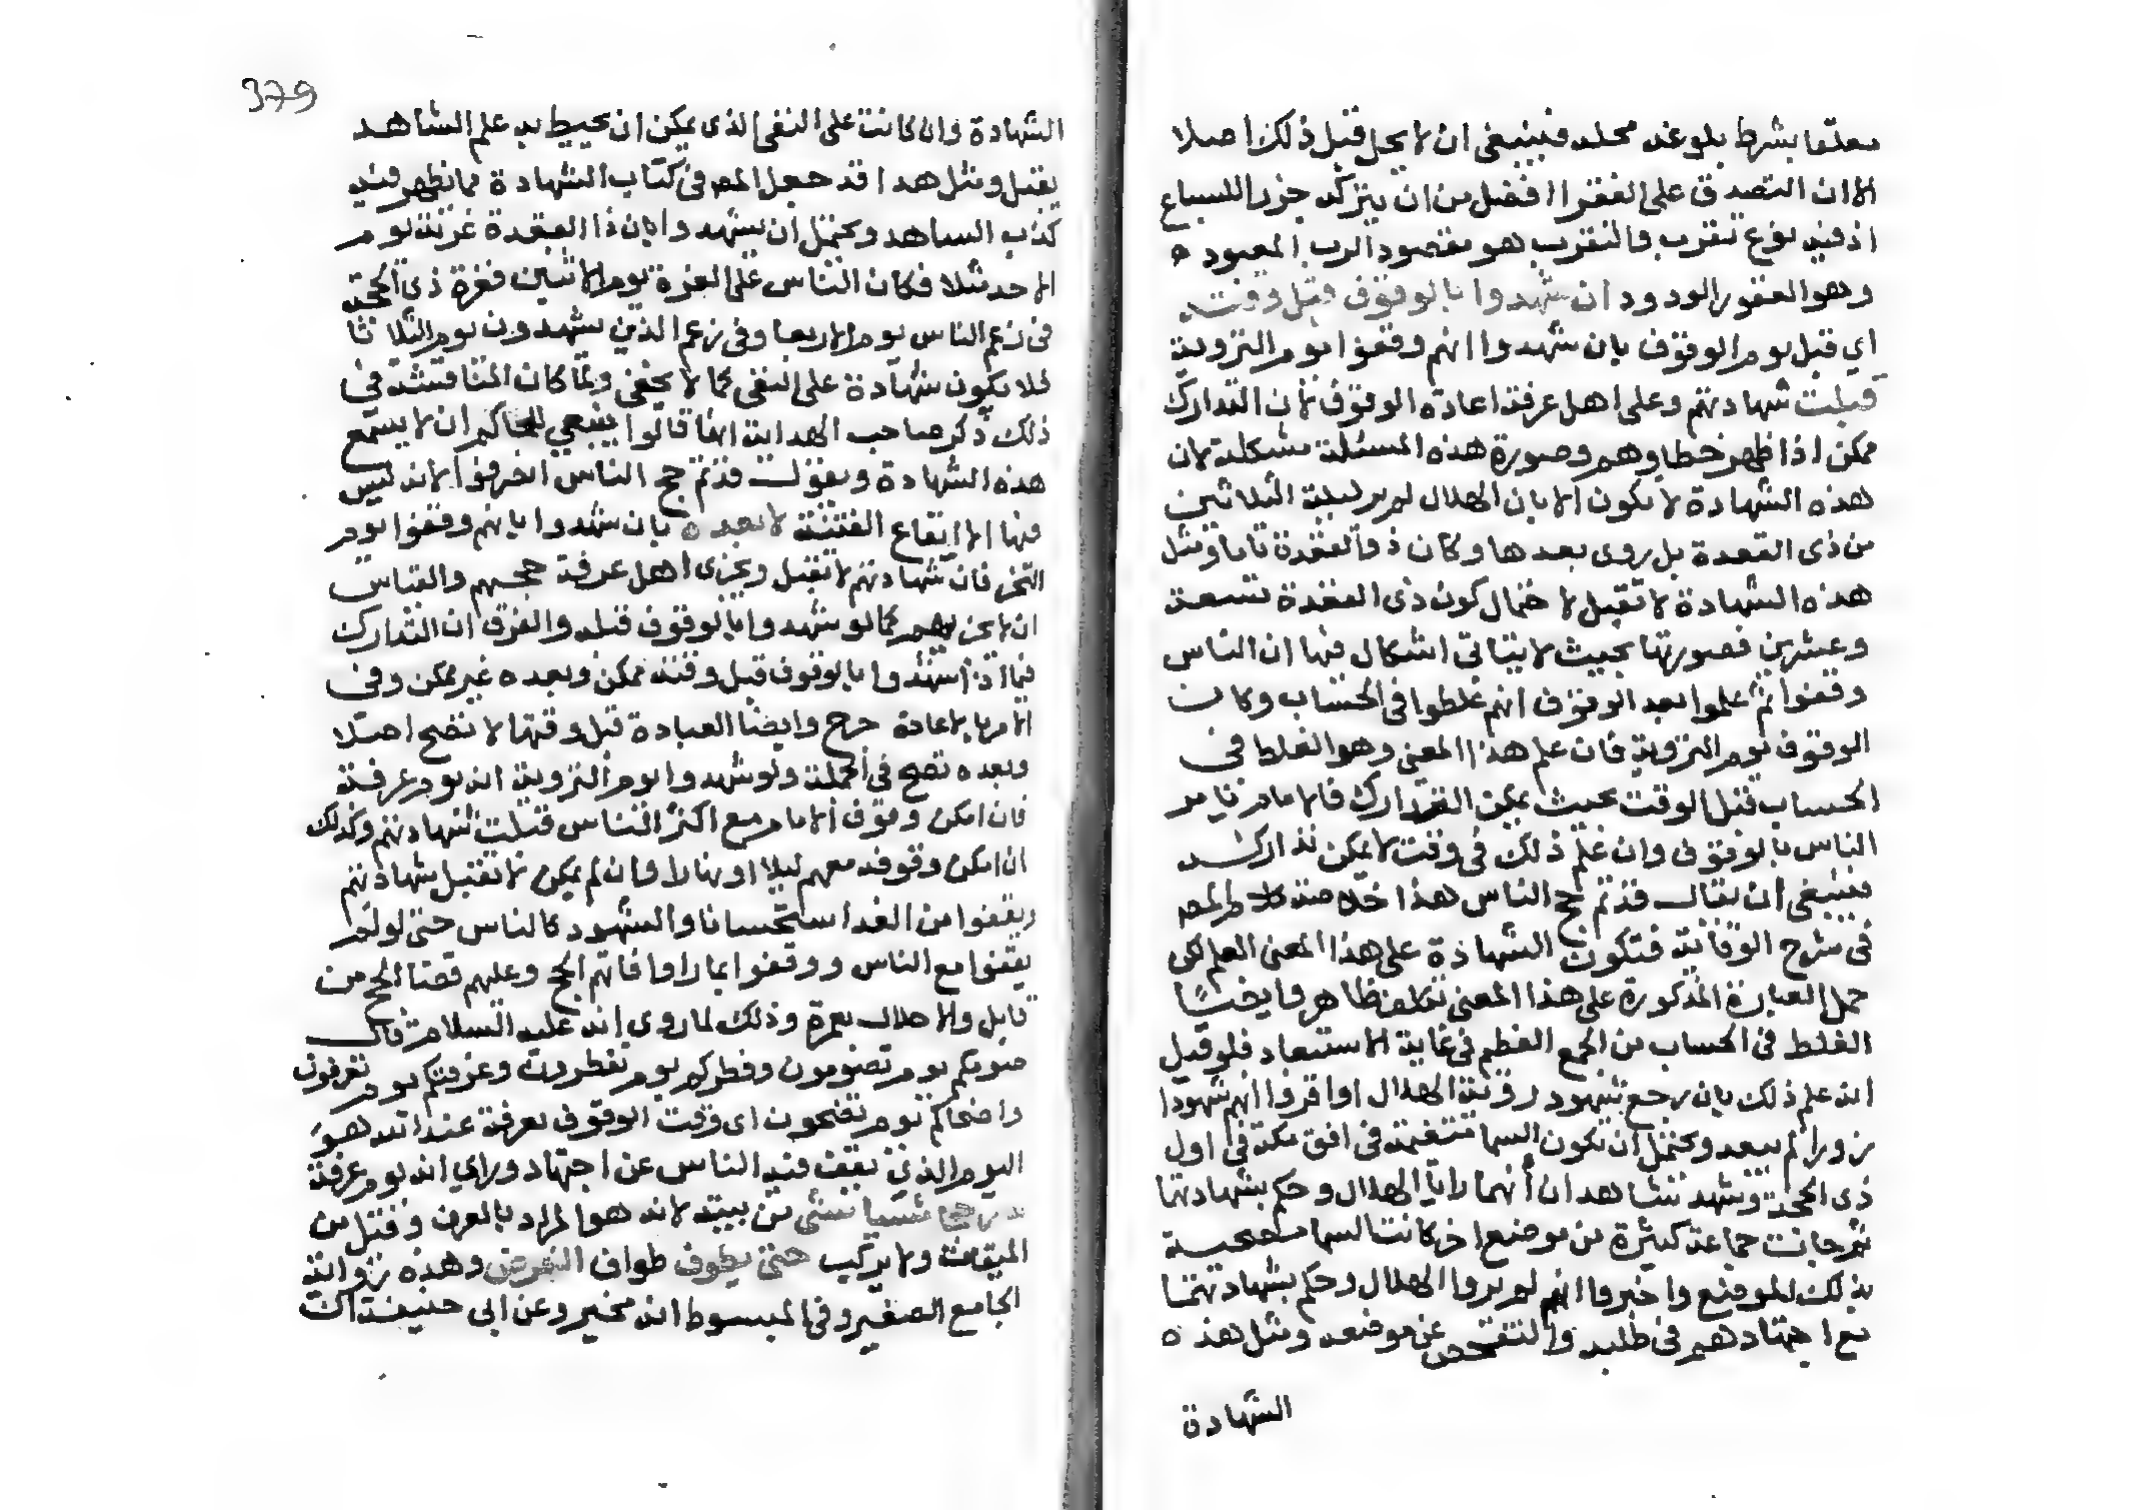 معلقا بشرط بلوغه محله فينبغي ان لا يحل قبل ذلك اصلا
الا ان التصدق على الفقرا افضل من ان يتركه جزر السباع
اذ فيه نوع تقرب والتقرب هو مقصود الرب المعبود ه
وهو الغفور الودود ان شهدوا بالوقوف قبل وقته
اي قبل يوم الوقوف بان شهدوا انهم وقفوا يوم التروية
قبلت شهادتهم وعلى اهل عرفة اعادة الوقوف لان التدارك
ممكن اذا ظهر خطاوهم وصورة هذه المسئلة مشكلة لان
هذه الشهادة لا يكون الا بان الهلال لم ير ليلة الثلاثين
من ذى القعدة بل روى بعدها وكان ذو القعدة تاما ومثل
هذه الشهادة لا تقبل لا حتمال كون ذى القعدة تسعة
وعشرين فصورتها بحيث لا يتاتى اشكال فيها ان الناس
وقفوا ثم علموا بعد الوقوف انهم غلطوا في الحساب وكان
الوقوف يوم التروية فان علم هذا المعنى وهو الغلط فى
الحساب قبل الوقت بحيث يمكن التدارك فالامام يامر
الناس بالوقوف وان علم ذلك في وقت لا يمكن تداركه
فينبغى ان يقال قد تم حج الناس هذا خلاصة كلام المص
فى شرح الوقاية فتكون الشهادة على هذا المعنى العلم لكن
حمل العبارة المذكورة على هذا المعنى تكلف ظاهر وايضا
الغلط فى الحساب من الجمع العظيم في غاية الاستبعاد فلو قيل
انه علم ذلك بان رجع شهود روية الهلال او اقروا انهم شهودا
زورا لم يبعد ويحتمل ان تكون السما متغيمة في افق مكة في اول
ذى الحجة وشهد شاهدان انهما رايا الهلال وحكم بشهادتهما
ثم جات جماعة كثيرة من موضع اخر كانت السما مصحية
بذلك الموضع واخبروا انهم لم يروا الهلال وحكم بشهادتهما
مع اجتهادهم فى طلبه والتفحص عن موضعه ومثل هذه
الشهادة
379
الشهادة وان كانت على النفى الذى يمكن ان يحيط به علم الشاهد
يقبل ومثل هذا قد جعل المص فى كتاب الشهادة مما يظهر فيه
كذب الساهد ويحتمل ان يشهدوا بان ذا القعدة غرته يوم
الاحد مثلا فكان الناس على الغرة يوم الاثنين فغرة ذى الحجة
فى زعم الناس يوم الاربعا وفى زعم الذين يشهدون يوم الثلاثا
فلا يكون شهادة على النفى كما لا يخفى ولما كان المناقشة فى
ذلك ذكر صاحب الهداية انها قالوا ينبغي للحاكم ان لا يسمع
هذه الشهادة ويقول قد تم حج الناس انصرفوا لانه ليس
فيها الا ايقاع الفتنة لا بعده بان شهدوا بانهم وقفوا يوم
النحر فان شهادتهم لا تقبل ويجزى اهل عرفة حجهم والقياس
ان لا يجزيهم كما لو شهدوا بالوقوف قبله والفرق ان التدارك
فيما اذا شهدوا بالوقوف قبل وقته ممكن وبعده غير ممكن وفى
الامر بالاعادة حرج وايضا العبادة قبل وقتها لا تصح اصلا
وبعده تصح في الجملة ولو شهدوا يوم التروية انه يوم عرفة
فان امكن وقوف الامام مع اكثر الناس قبلت شهادتهم وكذلك
ان امكن وقوفه معهم ليلا او نهارا وان لم يمكن لا تقبل شهادتهم
ويقفوا من الغد استحسانا والشهود كالناس حتى لو لم
يقفوا مع الناس ووقفوا بما راوا فاتهم الحج وعليهم قضا الحج من
قابل والاحلال بعمرة وذلك لما روى انه عليه السلام قال
صومكم يوم تصومون وفطركم يوم تفطرون وعرفتكم يوم تعرفون
واضحاكم يوم تضحون اى وقت الوقوف بعرفة عند الله هو
اليوم الذى يقف فيه الناس عن اجتهاد وراي انه يوم عرفة
نذر حجا مشيا مشى من بيته لانه هو المراد بالعرف وقيل من
الميقات ولا يركب حتى يطوف طواف الفرض وهذه رواية
الجامع الصغير وفى المبسوط انه مخير وعن ابى حنيفة ان